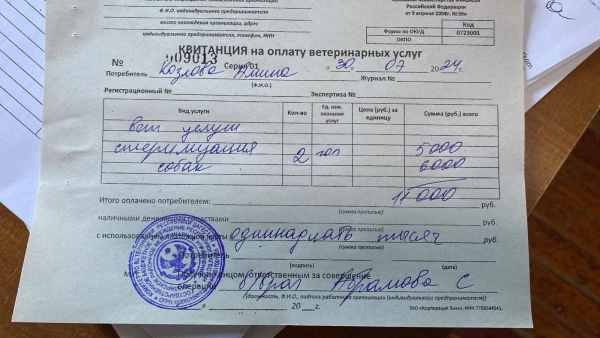 Ф.И.О. индивидуального предпринимателя
место нахождения организации, адрес
индивидуального предпринимателя, телефон, ИНН
Российской Федерации
от 9 апреля 2008г. № 39н
Код
Форма по ОКУД 0723003
ОКПО
КВИТАНЦИЯ на оплату ветеринарных услуг
№ 009013 Серия 01 30. 07 2024г.
Потребитель Козлова Амина Журнал №
(Ф.И.О.)
Регистрационный № Экспертиза №
Вид услуги Кол-во Ед. изм. оказания услуг Цена (руб.) за единицу Сумма (руб.) всего
Вет услуги
стерилизация 2 гол 5000
собак 6000
Итого оплачено потребителем: 11000 руб.
(сумма прописью)
наличными денежными средствами руб.
(сумма прописью)
с использованием платежной карты одиннадцать тысяч руб.
(сумма прописью)
(подпись) (дата)
ответственным за совершение
операции в/врач Абрамова С
(должность, Ф.И.О., подпись работника организации (индивидуального предпринимателя))
20 г.